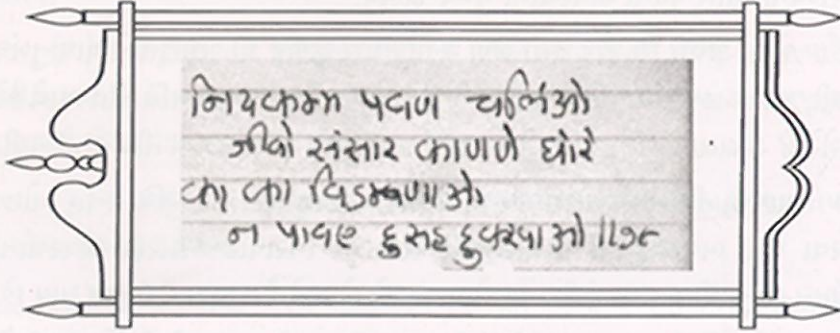 नियकम्म पवण चलिओ
जीवो संसार काणणे घोरे
का का विडम्बणाओ
न पावए दुसह दुक्खाओ ॥७८